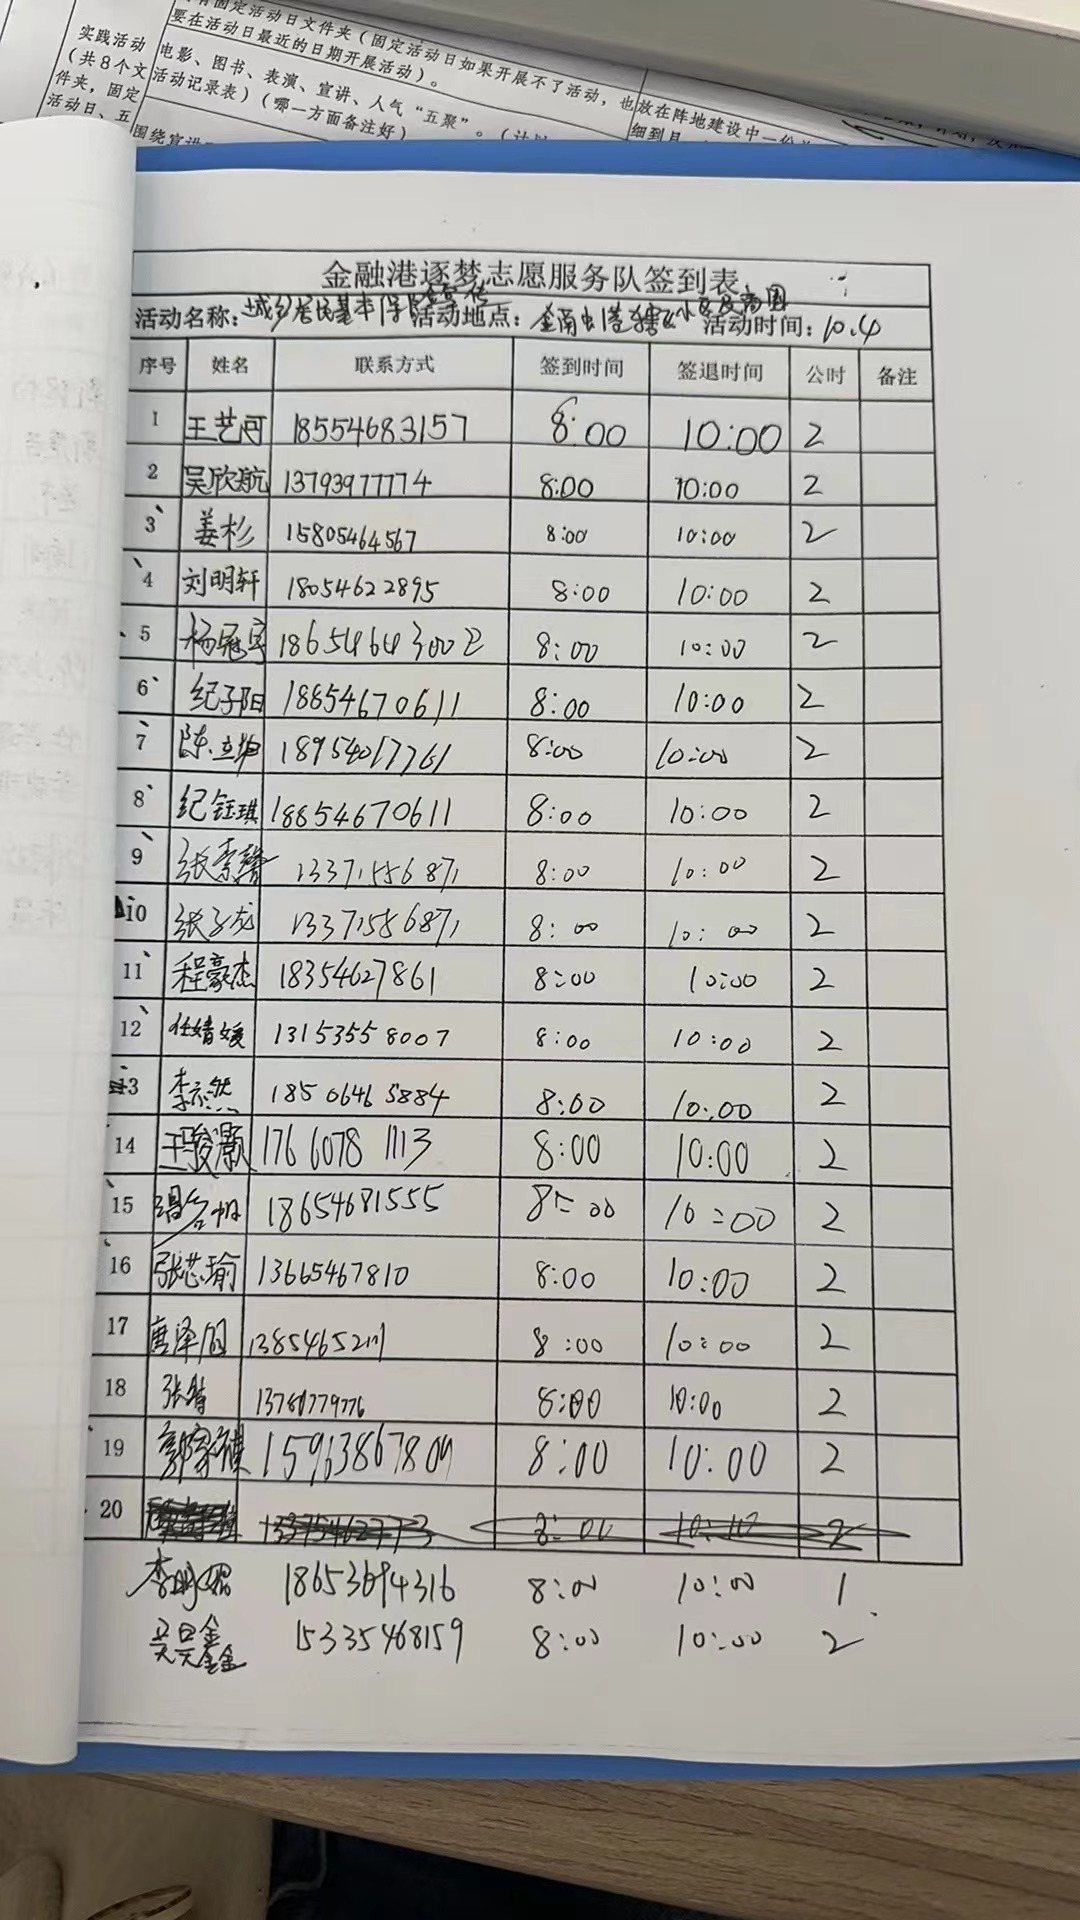 实践活动
（共8个文
件夹，固定
活动日、五
有固定活动日文件夹（固定活动日如果开展不了活动，也放在阵地建设中一份
要在活动日最近的日期开展活动）。
电影、图书、表演、宣讲、人气“五聚”。
活动记录表）（哪一方面备注好）
围绕宣讲
细到月
金融港逐梦志愿服务队签到表
活动名称：城乡居民基本 活动地点：金融港辖区小区及商圈 活动时间：10.4
序号 姓名 联系方式 签到时间 签退时间 公时 备注
1 王艺河 18554683157 8:00 10:00 2
2 吴欣航 13793977774 8:00 10:00 2
3 姜杉 15805464567 8:00 10:00 2
4 刘明轩 18054622895 8:00 10:00 2
5 杨冠宇 18654643002 8:00 10:00 2
6 纪子阳 18854670611 8:00 10:00 2
7 陈立 18954017761 8:00 10:00 2
8 纪钰琪 18854670611 8:00 10:00 2
9 张 馨 13371556871 8:00 10:00 2
10 张子龙 13371556871 8:00 10:00 2
11 程豪杰 18354627861 8:00 10:00 2
12 任婧媛 13153558007 8:00 10:00 2
13 李 然 18506465884 8:00 10:00 2
14 王骏灏 176 6078 1113 8:00 10:00 2
15 18654681555 8:00 10:00 2
16 张芯瑜 13665467810 8:00 10:00 2
17 唐泽旭 8:00 10:00 2
18 张 8:00 10:00 2
19 郭家 8:00 10:00 2
20
李明 18653694316 8:00 10:00 1
吴昊鑫 15335468159 8:00 10:00 2